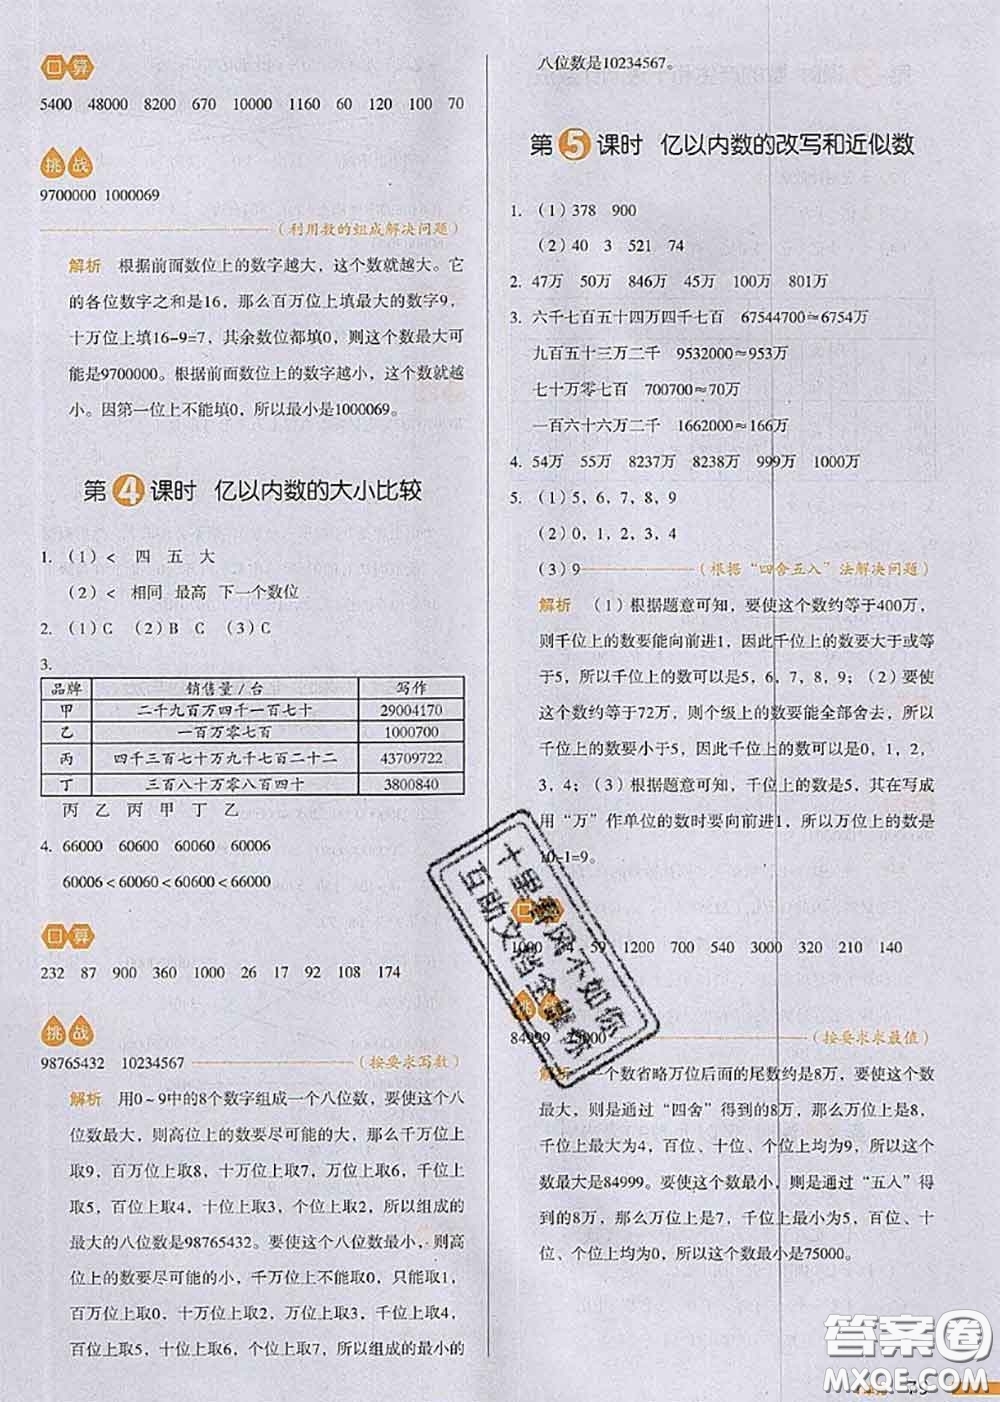 口算
5400 48000 8200 670 10000 1160 60 120 100 70
挑战
9700000 1000069
（利用数的组成解决问题）
解析 根据前面数位上的数字越大，这个数就越大。它
的各位数字之和是16，那么百万位上填最大的数字9，
十万位上填16-9=7，其余数位都填0，则这个数最大可
能是9700000。根据前面数位上的数字越小，这个数就越
小。因第一位上不能填0，所以最小是1000069。
第4课时 亿以内数的大小比较
1.（1）< 四 五 大
（2）< 相同 最高 下一个数位
2.（1）C （2）B C （3）C
3.
品牌 销售量/台 写作
甲 二千九百万四千一百七十 29004170
乙 一百万零七百 1000700
丙 四千三百七十万九千七百二十二 43709722
丁 三百八十万零八百四十 3800840
丙 乙 丙 甲 丁 乙
4. 66000 60600 60060 60006
60006<60060<60600<66000
口算
232 87 900 360 1000 26 17 92 108 174
挑战
98765432 10234567（按要求写数）
解析 用0~9中的8个数字组成一个八位数，要使这个八
位数最大，则高位上的数要尽可能的大，那么千万位上
取9，百万位上取8，十万位上取7，万位上取6，千位上
取5，百位上取4，十位上取3，个位上取2，所以组成的
最大的八位数是98765432。要使这个八位数最小，则高
位上的数要尽可能的小，千万位上不能取0，只能取1，
百万位上取0，十万位上取2，万位上取3，千位上取4，
百位上取5，十位上取6，个位上取7，所以组成的最小的
八位数是10234567。
第5课时 亿以内数的改写和近似数
1.（1）378 900
（2）40 3 521 74
2. 47万 50万 846万 45万 100万 801万
3. 六千七百五十四万四千七百 67544700≈6754万
九百五十三万二千 9532000≈953万
七十万零七百 700700≈70万
一百六十六万二千 1662000≈166万
4. 54万 55万 8237万 8238万 999万 1000万
5.（1）5，6，7，8，9
（2）0，1，2，3，4
（3）9（根据“四舍五入”法解决问题）
解析 （1）根据题意可知，要使这个数约等于400万，
则千位上的数要能向前进1，因此千位上的数要大于或等
于5，所以千位上的数可以是5，6，7，8，9；（2）要使
这个数约等于72万，则个级上的数要能全部舍去，所以千
位上的数要小于5，因此千位上的数可以是0，1，2，
3，4；（3）根据题意可知，千位上的数是5，其在写成
用“万”作单位的数时要向前进1，所以万位上的数是
10-1=9。
口算
1000 59 1200 700 540 3000 320 210 140
挑战
84999 75000（按要求求最值）
解析 一个数省略万位后面的尾数约是8万，要使这个数
最大，则是通过“四舍”得到的8万，那么万位上是8，
千位上最大为4，百位、十位、个位上均为9，所以这个
数最大是84999。要使这个数最小，则是通过“五入”得
到的8万，那么万位上是7，千位上最小为5，百位、十
位、个位上均为0，所以这个数最小是75000。
十里春风不如你
互助文档全靠你
答案圈
MXQE.COM
79